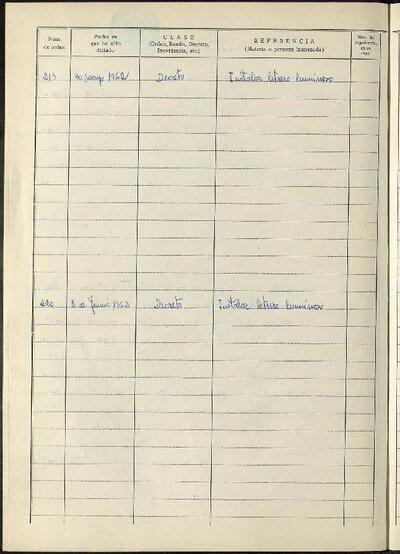 Núm. de orden
Fecha en que ha sido dictado
CLASE
(Orden, Bando, Decreto, Providencia, etc.)
REFERENCIA
(Materia o persona interesada)
Núm. del expediente, en su caso
219 30 mayo 1962 Decreto Instalar letrero luminoso
220 5 Junio 1962 Decreto Instalar letrero luminoso